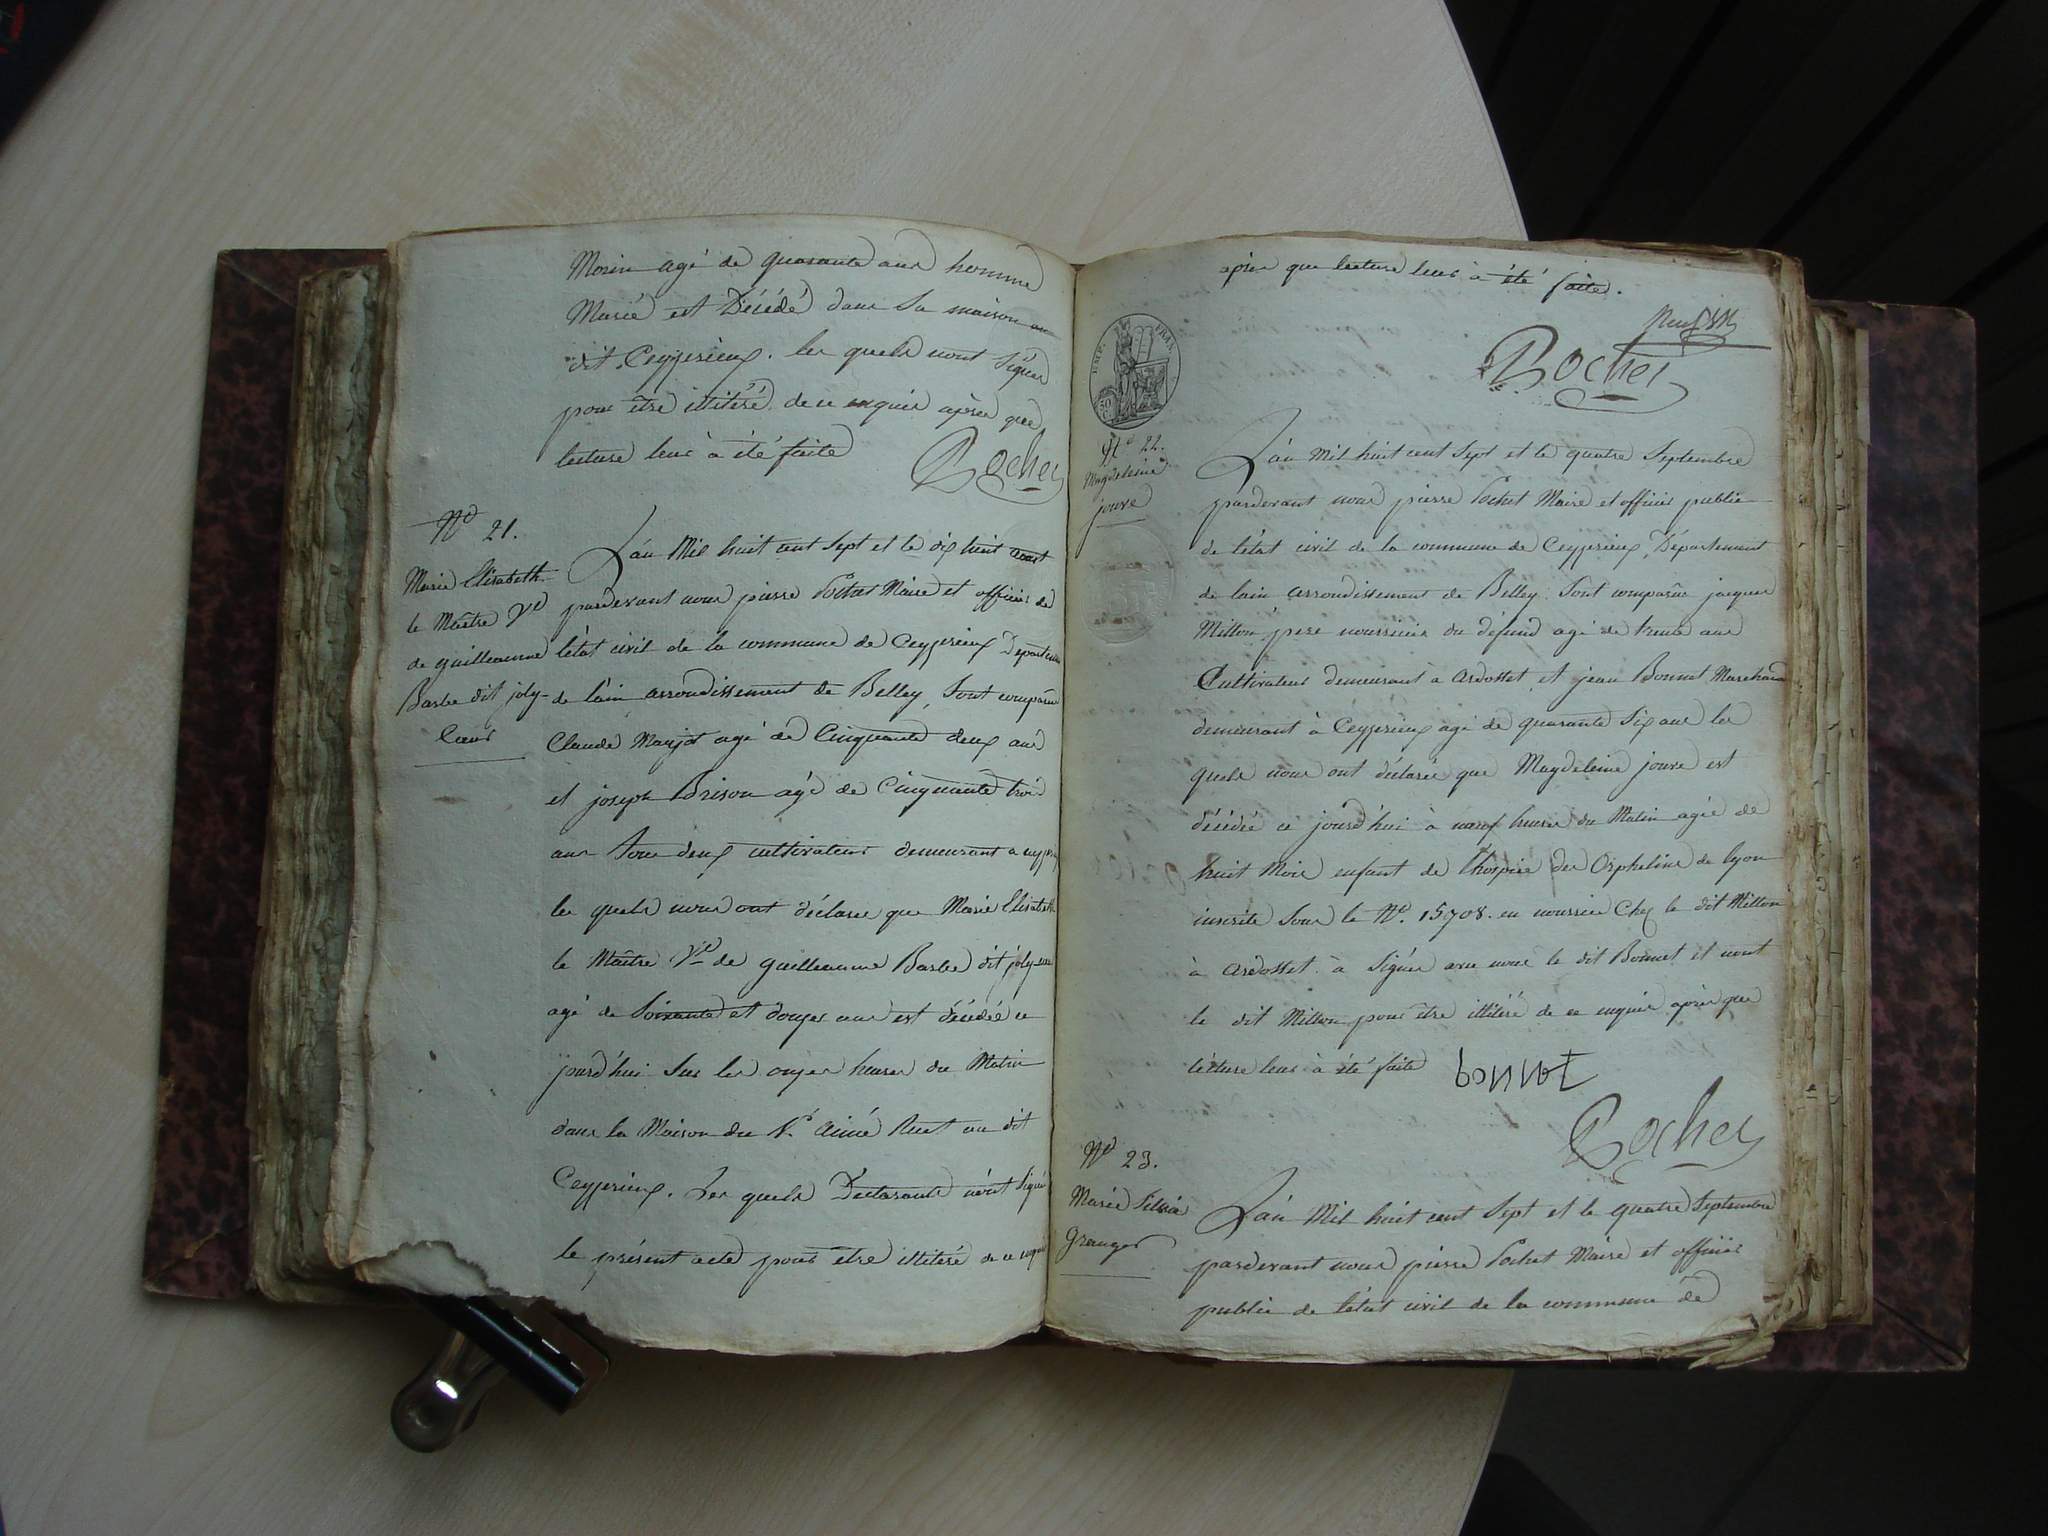 Morin agé de quarante ans homme
Marié est Décédé dans Sa maison au
dit Ceyzerieux. les quels n'ont Signés
pour être illitéré de ce enquis après que
lecture leur à été faite
Pochet
N° 21.
Marie Elisabeth
le Maître Ve
de guilleaume
Barbe dit joly-
Coeur
L'an Mil huit cent Sept et le dix huit aout
pardevant nous pierre Pochet Maire et officier de
l'état civil de la commune de Ceyzerieux Département
de l'ain arrondissement de Belley, Sont comparus
Claude Marjot agé de Cinquante deux ans
et joseph Brison agé de Cinquante trois
ans tous deux cultivateurs demeurant a
les quels nous ont déclarés que Marie Elisabeth
le Maître Ve de guilleaume Barbe dit joly
agé de Soixante et douzes ans est décédée ce
jourd'hui Sur les onzes heures du Matin
dans la Maison du Sr Aimé au dit
Ceyzerieux. Les quels Declarants n'ont Signés
le présent acte pour être illitéré de ce enquis
après que lecture leur à été faite.
Pochet
IMP. FRAN.
50 C
N° 22.
Magdeleine
jouve
L'an Mil huit cent Sept et le quatre Septembre
pardevant nous pierre Pochet Maire et officier public
de l'état civil de la commune de Ceyzerieux, Département
de l'ain arrondissement de Belley. Sont comparus jacques
Millon père nourricier du défund agé de trente ans
Cultivateur demeurant à Ardosset, et jean Bonnet Marchand
demeurant à Ceyzerieux agé de quarante Six ans les
quels nous ont déclarés que Magdeleine jouve est
décédée ce jourd'hui à neuf heures du Matin agée de
huit Mois enfant de l'hospice des Orphelins de lyon
inscrite Sous le N°. 15708. en nourrice Chez le dit Millon
à Ardosset. à Signés avec nous le dit Bonnet et nont
le dit Millon pour être illitéré de ce enquis après que
lecture leur à été faite
bonnet
Pochet
N° 23.
Marie Silvie
Granger
L'an Mil huit cent Sept et le quatre Septembre
pardevant nous pierre Pochet Maire et officier
public de l'état civil de la commune de